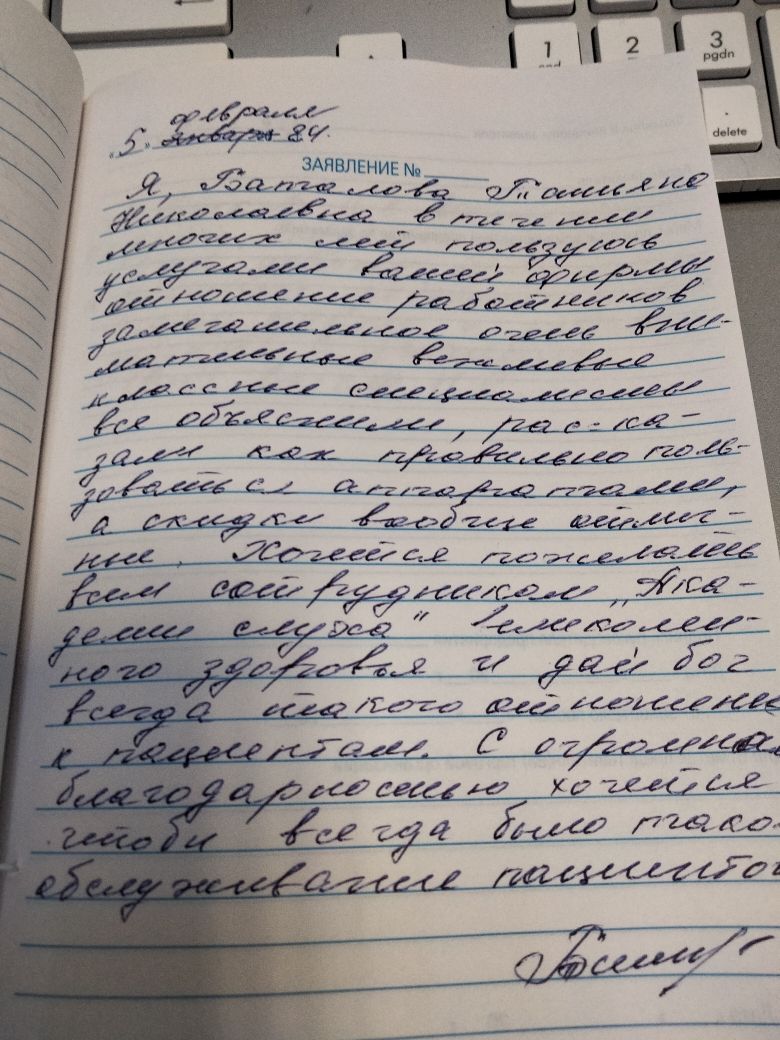 февраля
"5" января 24.
ЗАЯВЛЕНИЕ №
Я, Баталова Татьяна
Николаевна в течении
многих лет пользуюсь
услугами вашей фирмы
отношение работников
замечательное очень вни-
мательные вежливые
классные специалисты
все объяснили, рас-ка-
зали как правильно поль-
зоваться аппаратами,
а скидки вообще отлич-
ные. Хочется пожелать
всем сотрудникам "Ака-
демии слуха"
ного здоровья и дай бог
всегда такого отношения
к пациентам. С огромной
благодарностью хочется
чтоби всегда было тако-
обслуживание пациентов
1 end
2
3 pgdn
. delete